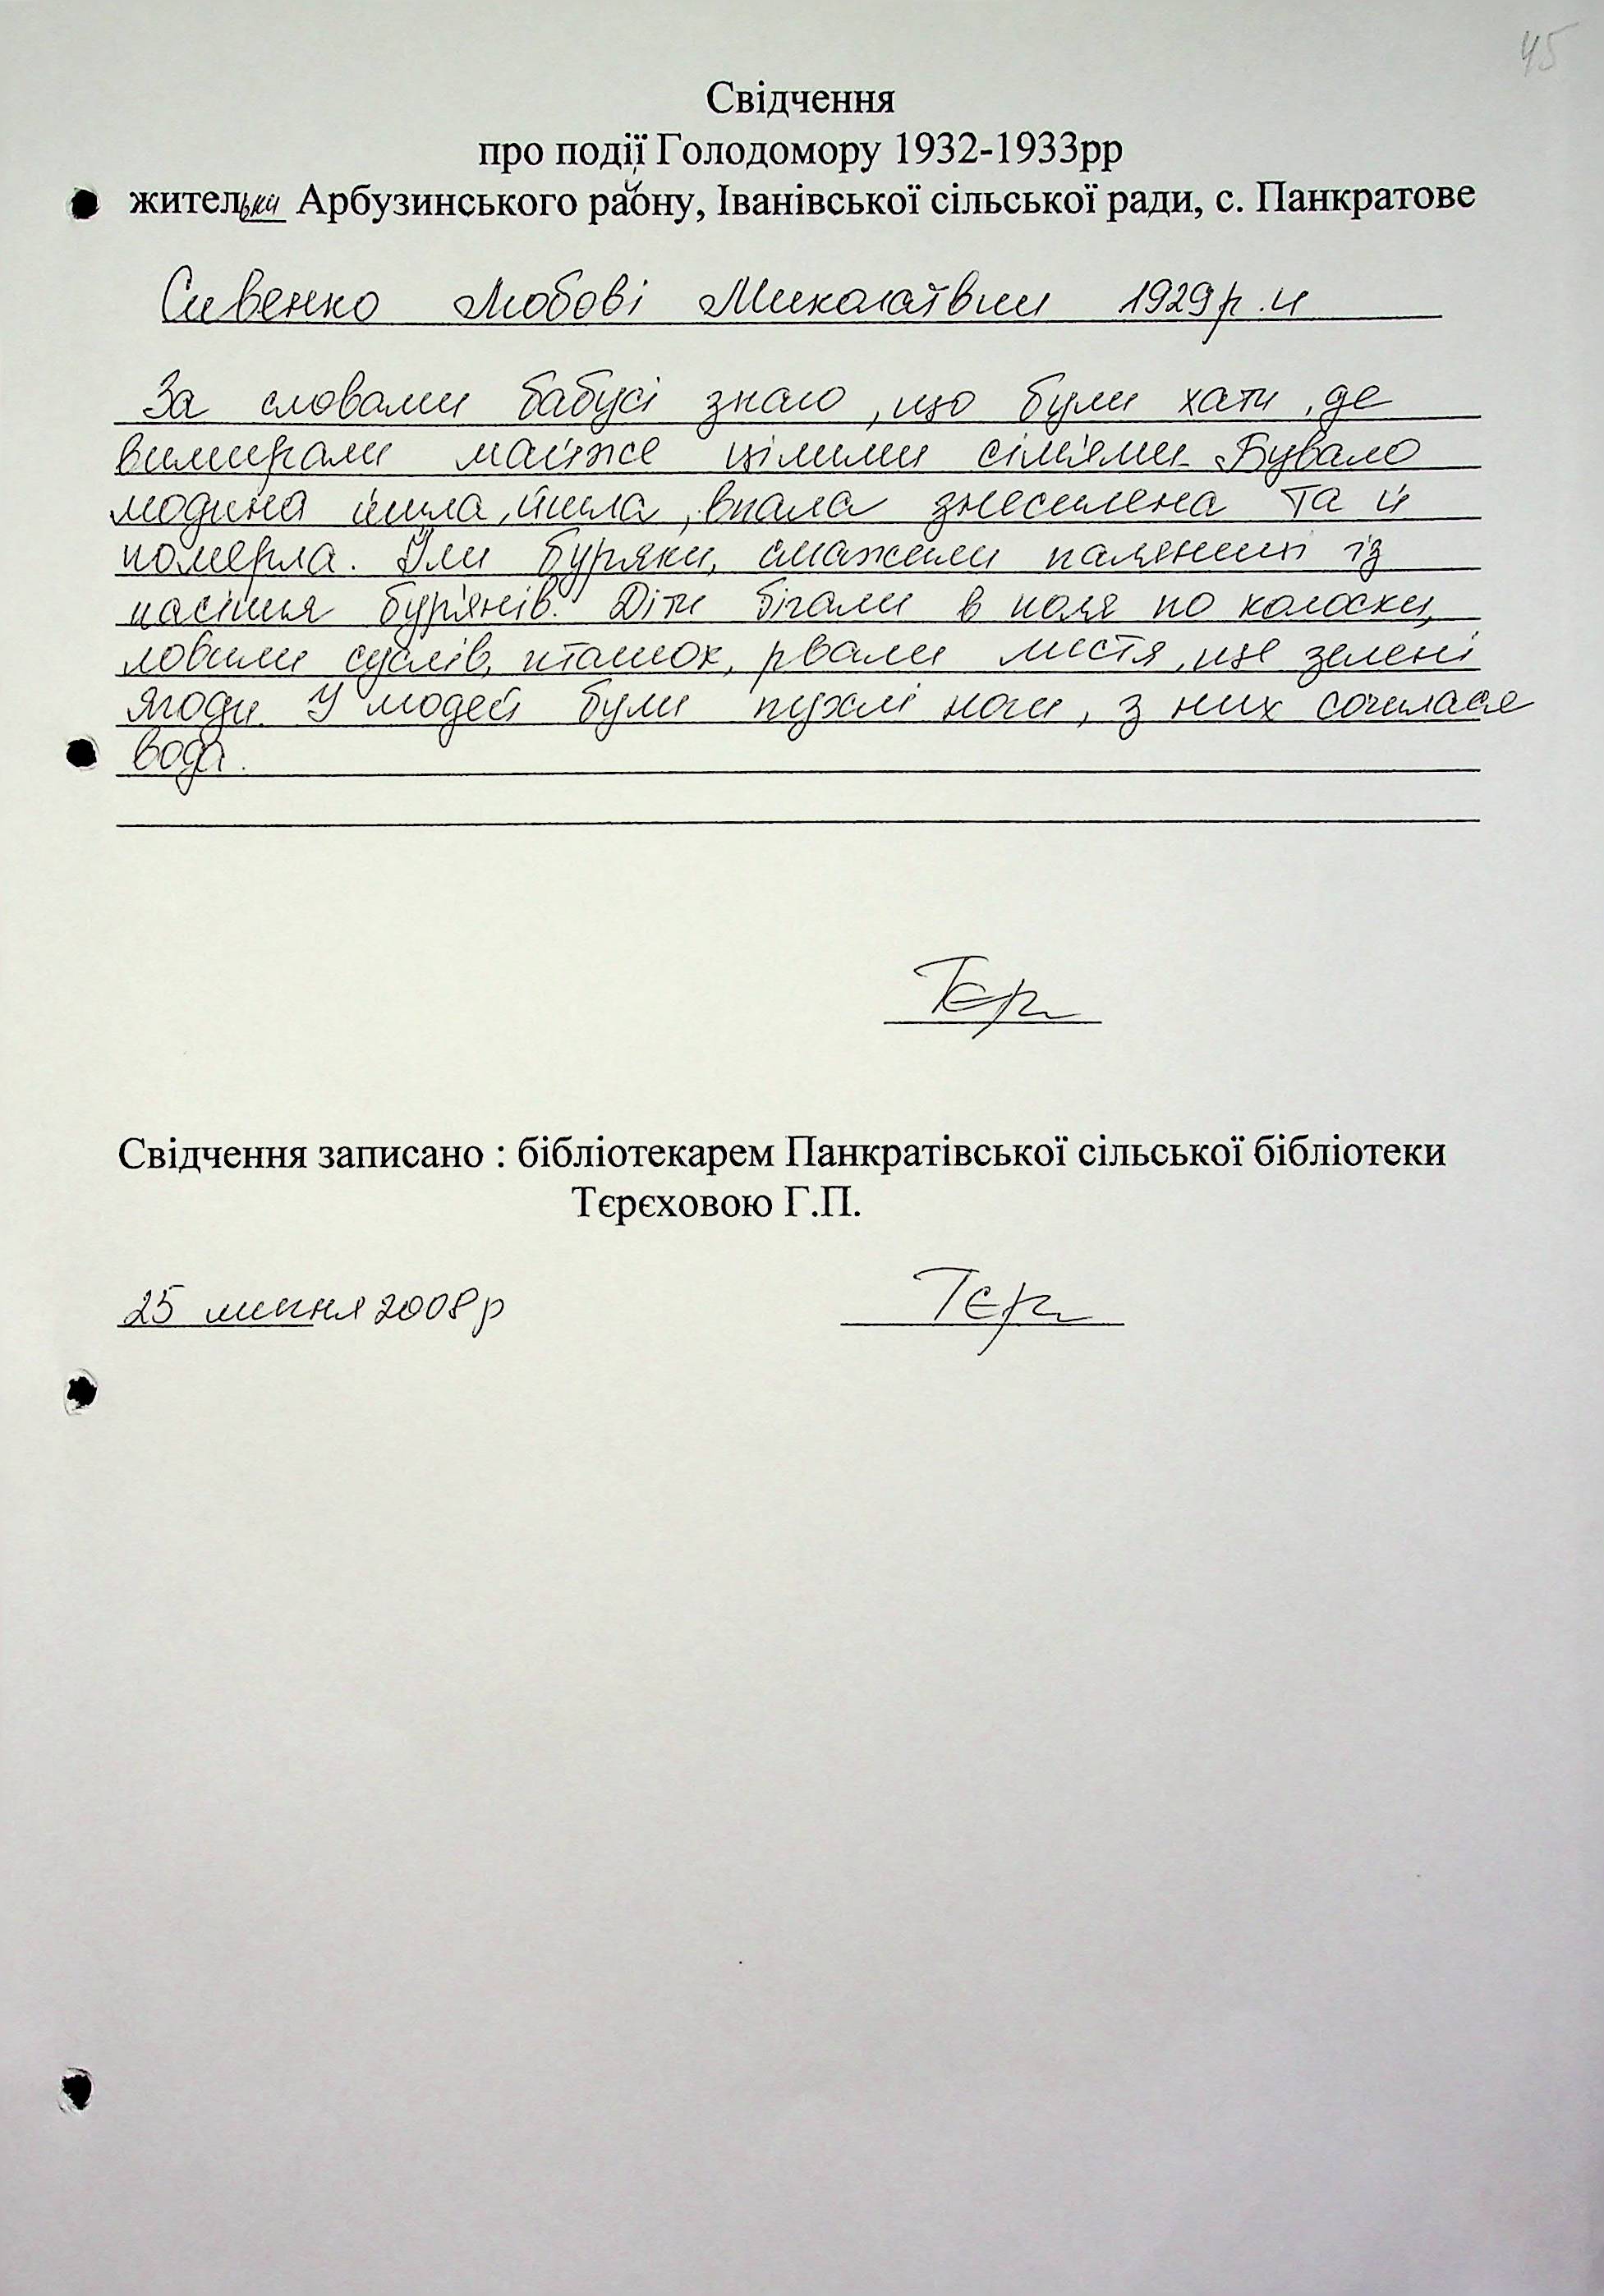 45
Свідчення
про події Голодомору 1932-1933рр
жительки Арбузинського району, Іванівської сільської ради, с. Панкратове
Сивенко Любові Миколаївни 1929р.н
За словами бабусі знаю, що були хати, де
вимирали майже цілими сім'ями. Бувало
людина йшла, йшла, впала знесилена та й
померла. Їли буряки, смажили паляниці із
насіння бур'янів. Діти бігали в поля по колоски,
ловили суслів, пташок, рвали листя, ще зелені
ягоди. У людей були пухлі ноги, з них сочилася
вода.
Тєр
Свідчення записано : бібліотекарем Панкратівської сільської бібліотеки
Тєрєховою Г.П.
25 липня 2008р
Тєр